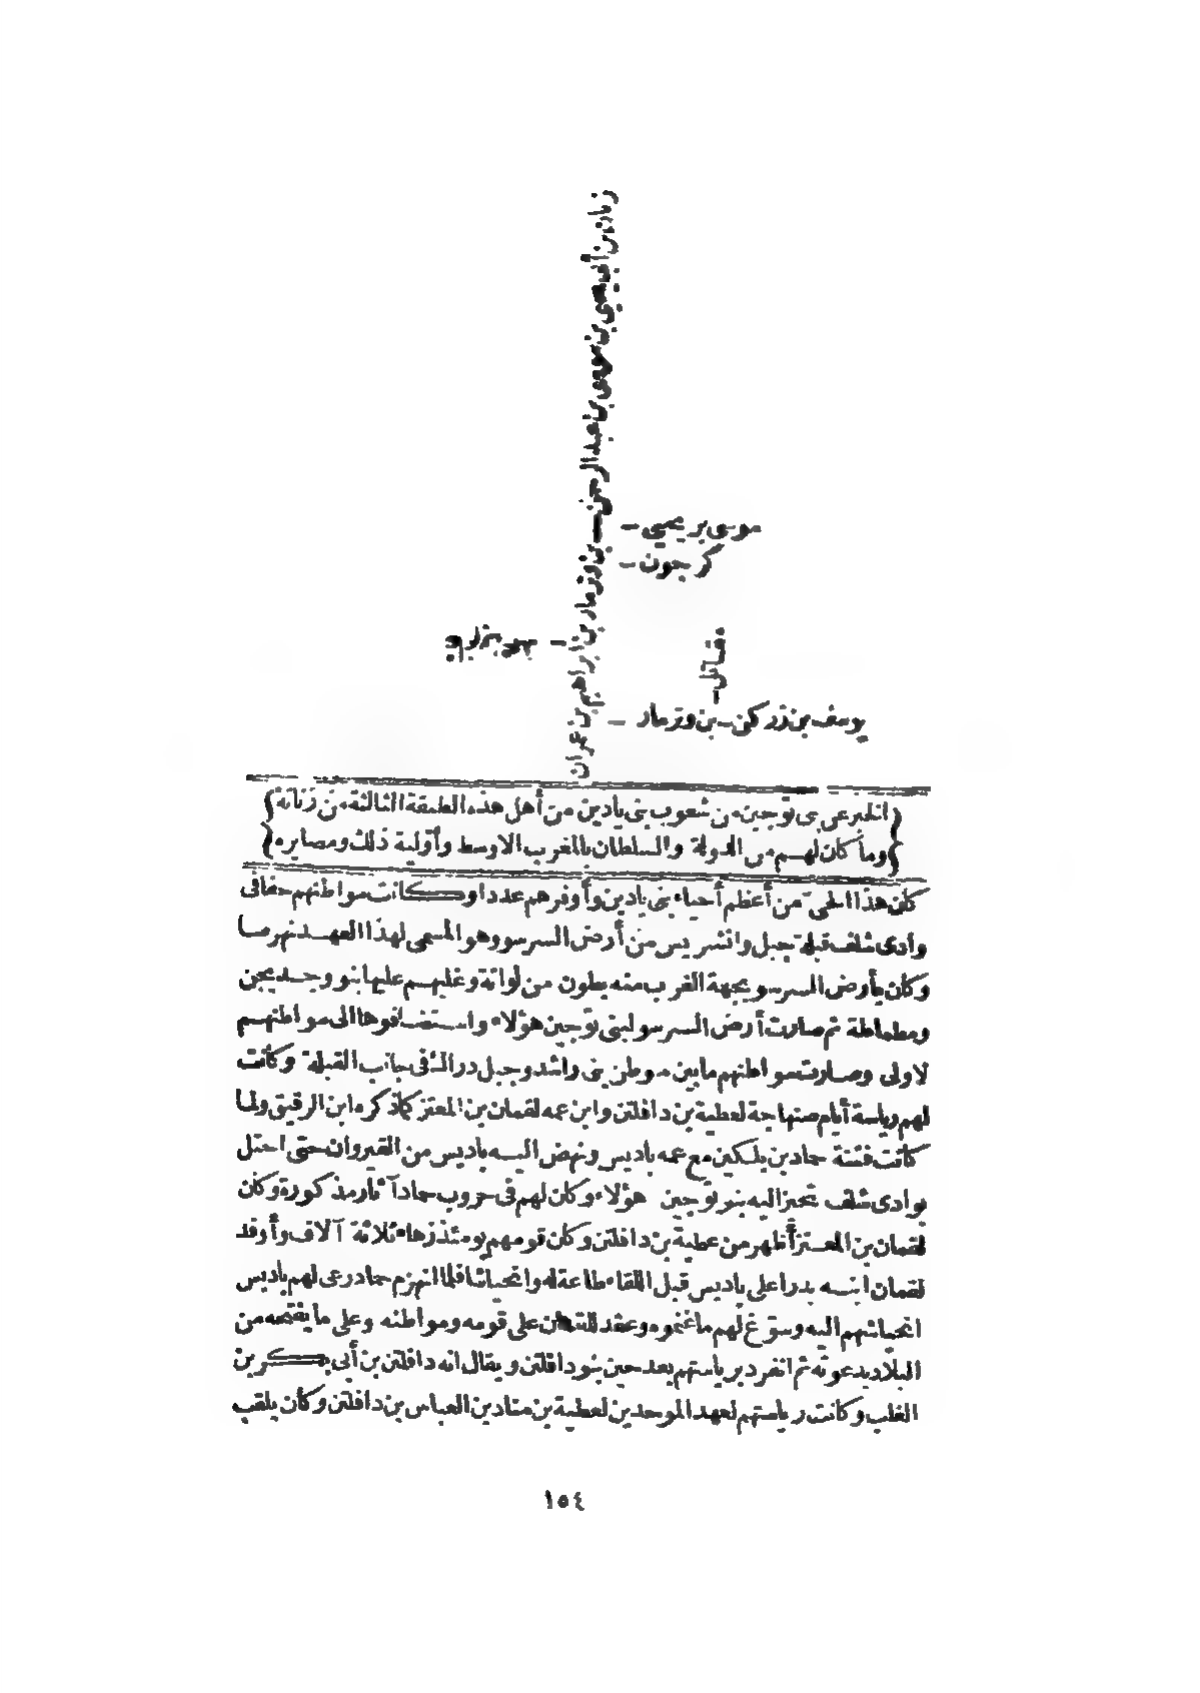 زيان بن أبي يحيى بن موسى بن عبد الرحمن ـ بن وترمار بن ابراهيم بن عمران
موسى بن يحيى ـ
كرجون ـ
مقاتل ـ
يوسف بن زركن ـ بن وترمار ـ
{الخبر عن بنى توجين من شعوب بنى يادين من أهل هذه الطبقة الثالثة من زناتة}
{وما كان لهم من الدولة والسلطان بالمغرب الاوسط وأولية ذلك ومصايره}
كان هذا الحى من أعظم أحياء بنى يادين وأوفرهم عددا وكانت مواطنهم حفافى
وادى شلف قبلة جبل وانشريس من أرض السرسو وهو المسمى لهذا العهد نهر صا
وكان بأرض السرسو بجهة الغرب منه بطون من لواتة وغلبهم عليها بنو وجديجن
ومطماطة ثم صارت أرض السرسو لبنى توجين هؤلاء واستضافوها الى مواطنهم
لاولى وصارت مواطنهم ما بين موطن بنى راشد وجبل دراك فى جانب القبلة وكانت
لهم رياسة أيام صنهاجة لعطية بن دافلتن وابن عمه لقمان بن المعتز كما ذكره ابن الرقيق ولما
كانت فتنة حماد بن بلكين مع عمه باديس ونهض اليه باديس من القيروان حتى احتل
بوادى شلف تحيز اليه بنو توجين هؤلاء وكان لهم فى حروب حماد آثار مذكورة وكان
لقمان بن المعتز أظهر من عطية بن دافلتن وكان قومهم يومئذ زهاء ثلاثة آلاف وأوفد
لقمان ابنه بدرا على باديس قبل اللقاء طاعة له وانحياشا فلما انهزم حماد رعى لهم باديس
انحياشهم اليه وسوّغ لهم ما غنموه وعقد للقمان على قومه ومواطنه وعلى ما يفتحه من
البلاد بدعوته ثم انفرد برياستهم بعد حين بنو دافلتن ويقال انه دافلتن بن أبى بكر بن
الغلب وكانت رياستهم لعهد الموحدين لعطية بن مناد بن العباس بن دافلتن وكان يلقب
١٥٤